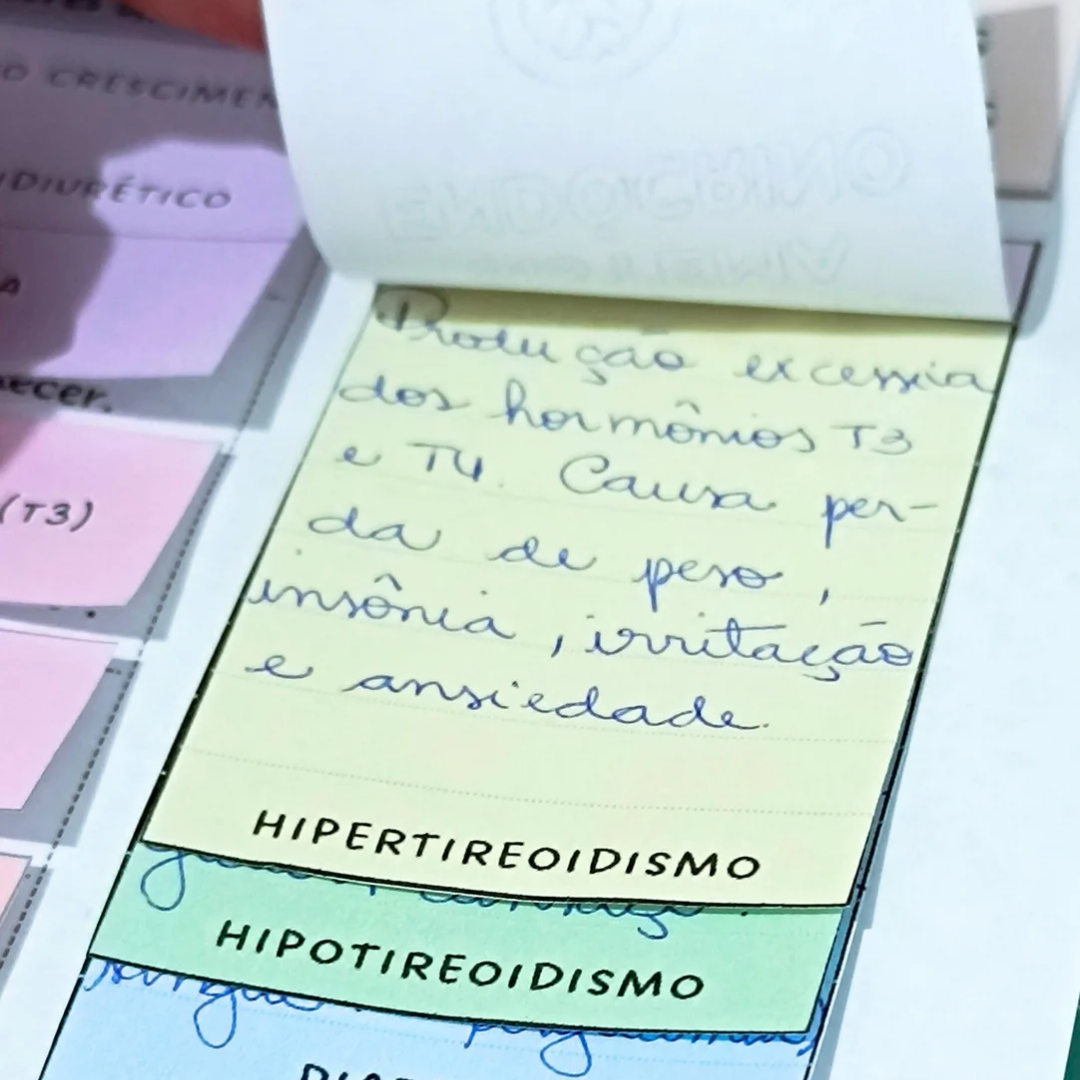 O CRESCIMEN
DIURÉTICO
A
ecer.
(T3)
ENDÓCRINO
Produção excessia
dos hormônios T3
e T4. Causa per-
da de peso,
insônia, irritação
e ansiedade.
HIPERTIREOIDISMO
HIPOTIREOIDISMO